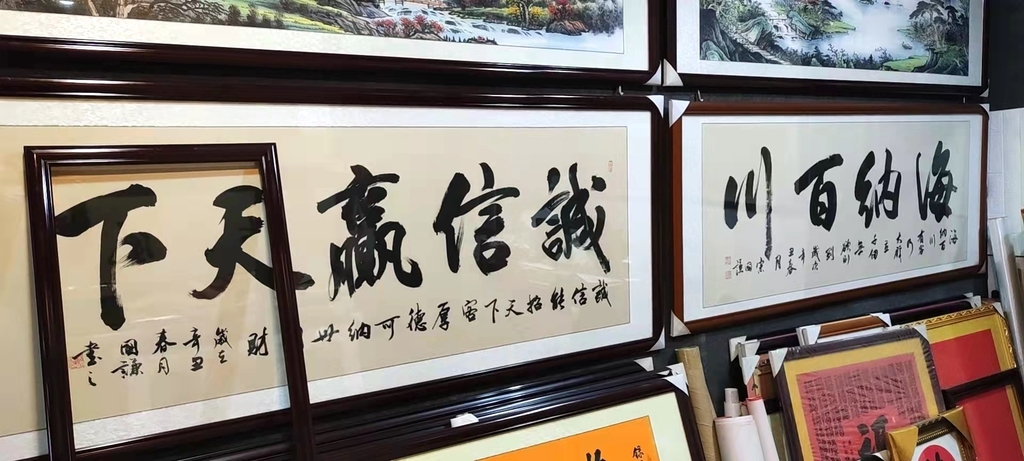 誠信贏天下
誠信能招天下客厚德可納世
財
歲在
辛丑
春月
國謙
書之
海納百川
海納百川有容乃大壁立千仞無欲則剛
歲次辛丑春月
國謙